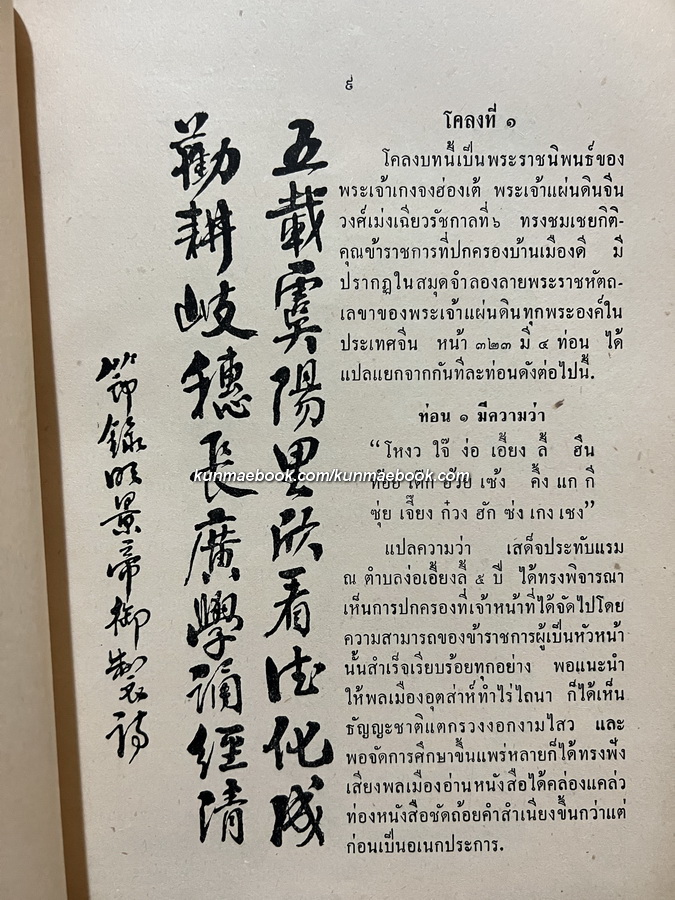 ๙
โคลงที่ ๑
โคลงบทนี้เป็นพระราชนิพนธ์ของ
พระเจ้าเกงจงฮ่องเต้ พระเจ้าแผ่นดินจีน
วงศ์เม่งเฉียวรัชกาลที่๖ ทรงชมเชยกิติ-
คุณข้าราชการที่ปกครองบ้านเมืองดี มี
ปรากฏในสมุดจำลองลายพระราชหัตถ-
เลขาของพระเจ้าแผ่นดินทุกพระองค์ใน
ประเทศจีน หน้า ๓๒๓ มี ๔ ท่อน ได้
แปลแยกจากกันทีละท่อนดังต่อไปนี้.
ท่อน ๑ มีความว่า
“โหงว ใจ๊ ง่อ เอี๊ยง ลี้ ฮึน
ค้อย เต๊ก ฮ้วย เซ้ง คึ้ง แก กี
ซุ่ย เจี๊ยง ก๋วง ฮัก ซ่ง เกง เชง”
แปลความว่า เสด็จประทับแรม
ณ ตำบลง่อเอี๊ยงลี้ ๕ ปี ได้ทรงพิจารณา
เห็นการปกครองที่เจ้าหน้าที่ได้จัดไปโดย
ความสามารถของข้าราชการผู้เป็นหัวหน้า
นั้นสำเร็จเรียบร้อยทุกอย่าง พอแนะนำ
ให้พลเมืองอุตส่าห์ทำไร่ไถนา ก็ได้เห็น
ธัญญะชาติแตกรวงงอกงามไสว และ
พอจัดการศึกษาขึ้นแพร่หลายก็ได้ทรงฟัง
เสียงพลเมืองอ่านหนังสือได้คล่องแคล่ว
ท่องหนังสือชัดถ้อยคำสำเนียงขึ้นกว่าแต่
ก่อนเป็นอเนกประการ.
五載虞陽里欣看德化成
勸耕岐穗長廣學誦經清
節錄明景帝御製詩
kunmaebook.com/kunmaebook.com